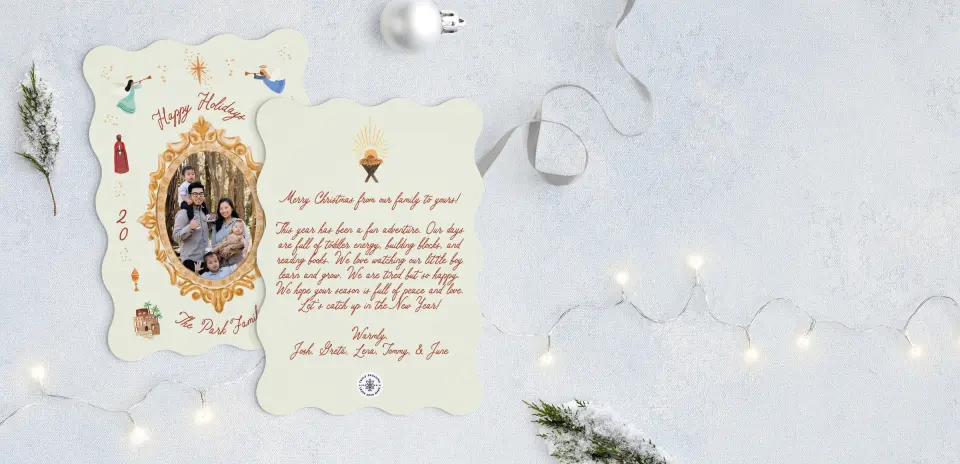 Happy Holidays
20
The Park Fami
Merry Christmas from our family to yours!
This year has been a fun adventure. Our days
are full of toddler energy, building blocks, and
reading books. We love watching our little boy
learn and grow. We are tired but so happy.
We hope your season is full of peace and love.
Let's catch up in the New Year!
Warmly,
Josh, Greta, Lena, Tommy, & June